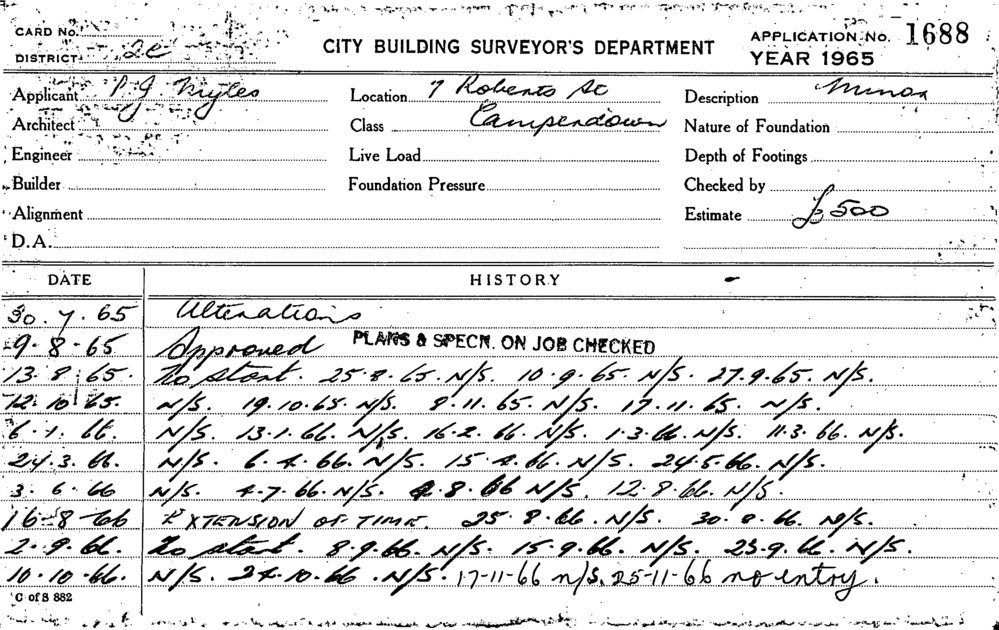 CARD No.
DISTRICT 2C
CITY BUILDING SURVEYOR'S DEPARTMENT
APPLICATION No. 1688
YEAR 1965
Applicant P. J. Myles
Location 7 Roberts St
Description Minor
Architect
Class Camperdown
Nature of Foundation
Engineer
Live Load
Depth of Footings
Builder
Foundation Pressure
Checked by
Alignment
Estimate £500
D.A.
DATE HISTORY
30.7.65 Alterations
9.8.65 Approved PLANS & SPECN. ON JOB CHECKED
13.8.65. No start. 25.8.65. N/S. 10.9.65. N/S. 27.9.65. N/S.
12.10.65. N/S. 19.10.65. N/S. 8.11.65. N/S. 17.11.65. N/S.
6.1.66. N/S. 13.1.66. N/S. 16.2.66. N/S. 1.3.66. N/S. 11.3.66. N/S.
24.3.66. N/S. 6.4.66. N/S. 15.4.66. N/S. 24.5.66. N/S.
3.6.66 N/S. 4.7.66. N/S. 4.8.66 N/S. 12.8.66. N/S.
16-8-66 EXTENSION OF TIME. 25.8.66. N/S. 30.8.66. N/S.
2.9.66. No start. 8.9.66. N/S. 15.9.66. N/S. 23.9.66. N/S.
10.10.66. N/S. 24.10.66. N/S. 17-11-66 n/s. 25-11-66 no entry.
C of S 882